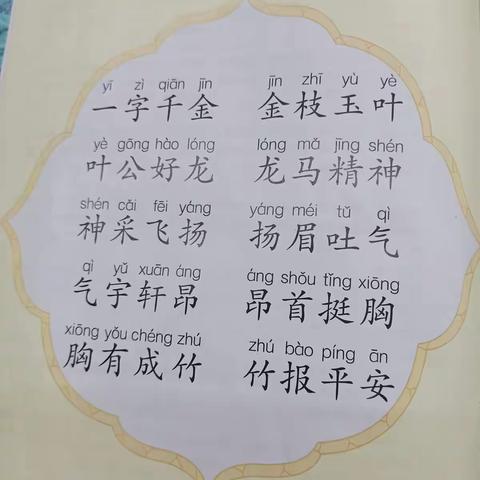 yī zì qiān jīn jīn zhī yù yè
一字千金 金枝玉叶
yè gōng hào lóng lóng mǎ jīng shén
叶公好龙 龙马精神
shén cǎi fēi yáng yáng méi tǔ qì
神采飞扬 扬眉吐气
qì yǔ xuān áng áng shǒu tǐng xiōng
气宇轩昂 昂首挺胸
xiōng yǒu chéng zhú zhú bào píng ān
胸有成竹 竹报平安